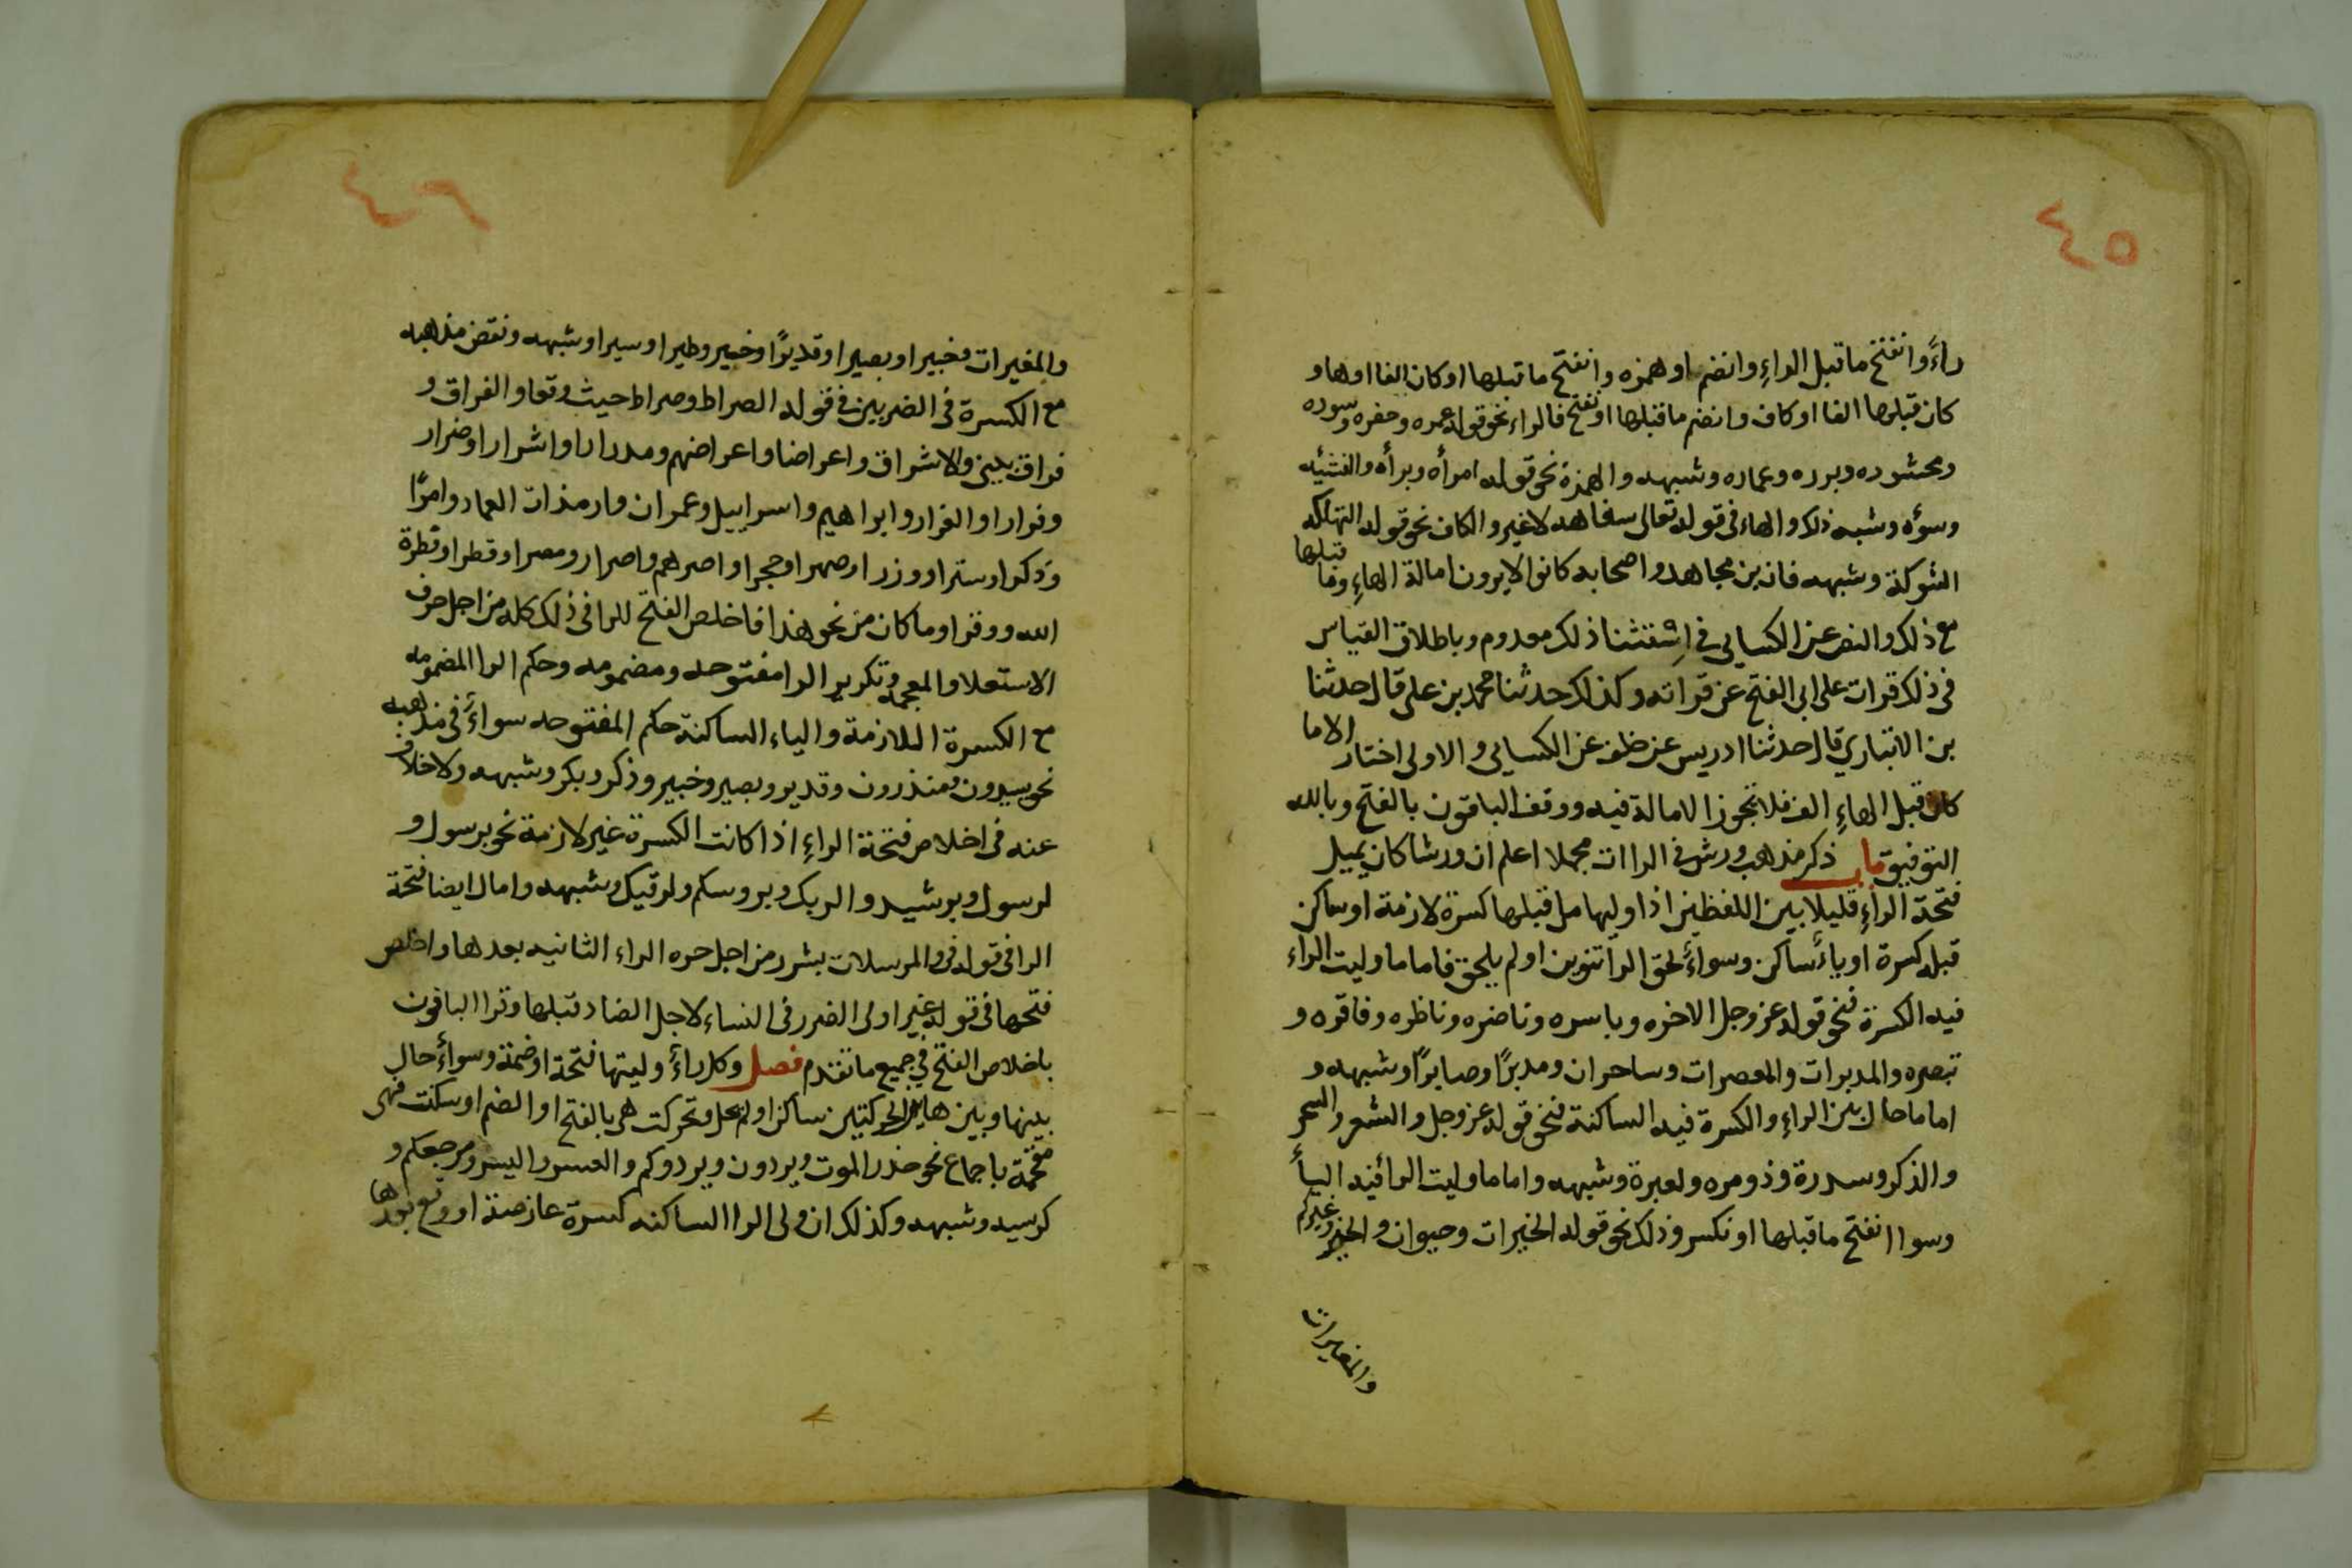 ٤٥
راءً وانفتح ما قبل الراءِ وانضم او همزه وانفتح ما قبلها او كان الفا او هاو
كان قبلها الفا او كاف وانضم ما قبلها او نفتح فالراء نحو قوله عمره وحفره وسوره
ومحشوره وبرره وعماره وشبهه والهمزة نحو قوله امرأه وبرأه والنشئه
وسوٴه وشبه ذلك والهاء فى قوله تعالى سفاهه لا غير والكاف نحو قوله التهلكه
الشوكة وشبهه فان بن مجاهد واصحابه كانوا لا يرون امالة الهاءِ وما قبلها
مع ذلك والنص عن الكسايى فى اِستثنا ذلك معدوم وباطلاق القياس
فى ذلك قرات على ابى الفتح عن قراته وكذلك حدثنا محمد بن على قال حدثنا
بن الانباري قال حدثنا ادريس عن خلف عن الكسايى والاولى اختار الاما
كان قبل الهاءِ الف فلا تجوز الامالة فيه ووقف الباقون بالفتح وبالله
التوفيق باب ذكر مذهب ورش فى الراات مجملا اعلم ان ورشا كان يميل
فتحة الراءِ قليلا بين اللفظين اذا وليها من قبلها كسرة لازمة او ساكن
قبله كسرة او ياءٌ ساكن وسواءٌ لحق الرا تنوين او لم يلحق فاما ما وليت الراء
فيه الكسرة فنحو قوله عز وجل الاخره وباسره وناضره وناظره وفاقره و
تبصره والمدبرات والمعصرات وساحران ومدبرًا وصابرًا وشبهه و
اما ما حال بين الراءِ والكسرة فيه الساكنة فنحو قوله عز وجل والشعر والسحر
والذكر وسدرة وذو مره ولعبرة وشبهه واما ما وليت الرا فيه اليأ
وسوا انفتح ما قبلها او نكسر وذلك نحو قوله الخيرات وحيران والخير وغيركم
والمغيرات
٤٦
والمغيرات وخبيرا وبصيرا وقديرًا وخبير وطيرا وسيرا وشبهه ونقض مذهبه
مع الكسرة فى الضربين فى قوله الصراط وصراط حيث وقعا والفراق و
فراق بينى والاشراق واعراضا واعراضهم ومدرارا واشرارا وضرار
وفرارا والفرار وابراهيم واسرايل وعمران وارم ذات العماد وامرًا
وذكرا وسترا ووزرا وصهرا وحجرا واصرهم واصرار ومصرا وقطرا وفطرة
الله ووقرا وما كان من نحو هذا فاخلص الفتح للرا فى ذلك كله من اجل حرف
الاستعلا والعجمه وتكرير الرا مفتوحه ومضمومه وحكم الرا المضمومه
مع الكسرة اللازمة والياء الساكنة حكم المفتوحه سواءٌ فى مذهبه
نحو يسرون منذرون وقدير وبصير وخبير وذكر وبكر وشبهه ولا خلاف
عنه فى اخلاص فتحة الراءِ اذا كانت الكسرة غير لازمة نحو برسول و
لرسول وبرشيد والربك وبروسكم ولرقيك وشبهه وامال ايضا فتحة
الرا فى قوله فى والمرسلات بشرر من اجل جره الراء الثانيه بعدها واخلص
فتحها فى قوله غير اولى الضرر فى النساء لاجل الضاد قبلها وقرا الباقون
باخلاص الفتح فى جميع ما تقدم فصل وكل راءٌ وليتها فتحة او ضمة وسواءٌ حال
بينها وبين هاتين الحركتين ساكن او لم يحل وتحركت هى بالفتح او الضم او سكنت فهى
مفخمة باجماع نحو حذر الموت ويردون ويردوكم والعسر واليسر ومرجعكم و
كرسيه وشبهه وكذلك ان ولى الرا الساكنه كسرة عارضة او وقع بعدها